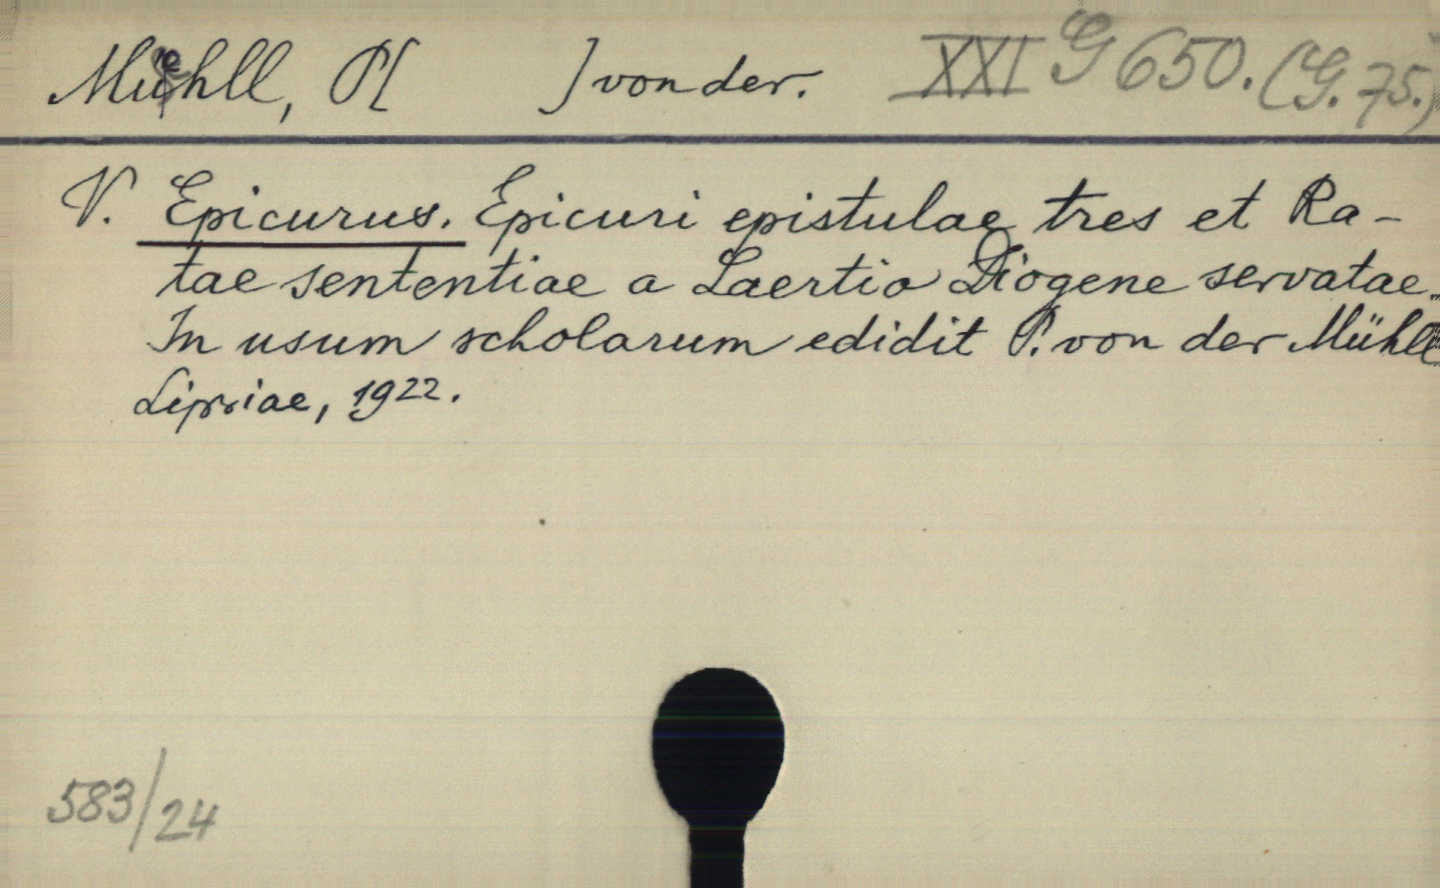 Muehll, P[ ] von der. XXI G 650. (G. 75.)
V. Epicurus. Epicuri epistulae tres et Ra-
tae sententiae a Laertio Diogene servatae.
In usum scholarum edidit P. von der Mühll
Lipsiae, 1922.
583/24